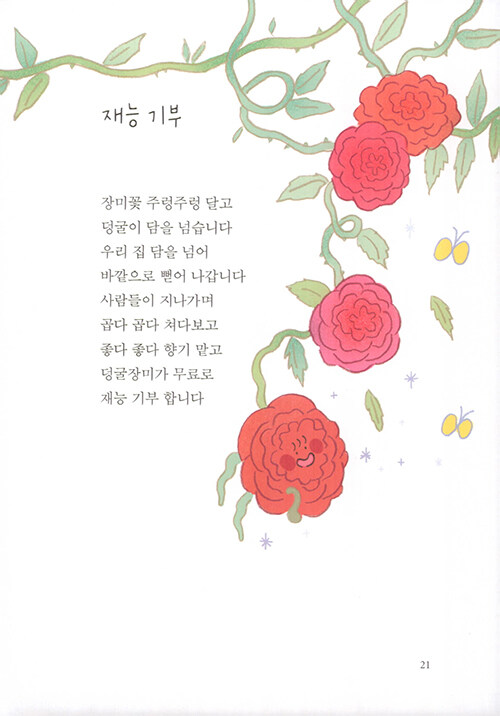 재능 기부
장미꽃 주렁주렁 달고
덩굴이 담을 넘습니다
우리 집 담을 넘어
바깥으로 뻗어 나갑니다
사람들이 지나가며
곱다 곱다 쳐다보고
좋다 좋다 향기 맡고
덩굴장미가 무료로
재능 기부 합니다
21